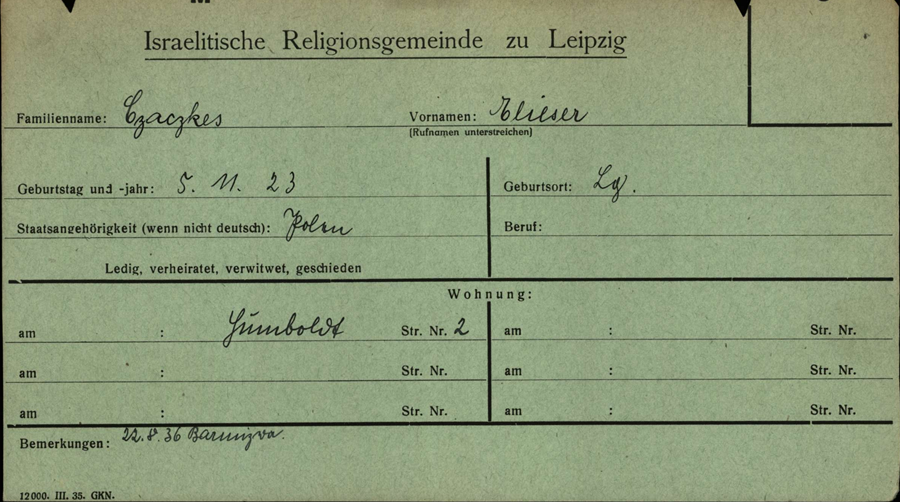 Israelitische Religionsgemeinde zu Leipzig
Familienname: Czaczkes Vornamen: Elieser
(Rufnamen unterstreichen)
Geburtstag und -jahr: 5. 11. 23 Geburtsort: Lg.
Staatsangehörigkeit (wenn nicht deutsch): Polen Beruf:
Ledig, verheiratet, verwitwet, geschieden
Wohnung:
am : Humboldt Str. Nr. 2 am : Str. Nr.
am : Str. Nr. am : Str. Nr.
am : Str. Nr. am : Str. Nr.
Bemerkungen: 22.8.36 Barmizwa.
12000. III. 35. GKN.